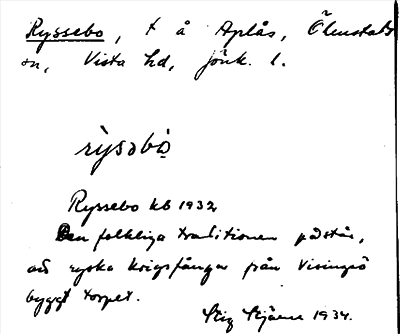 Ryssebo, t å Aplås, Ölmstads
sn, Vista hd, Jönk. l.
rysəbo
Ryssebo kb 1932
Den folkliga traditionen påstår,
att ryska krigsfångar från Visingsö
byggt torpet.
Stig Stjärne 1934.